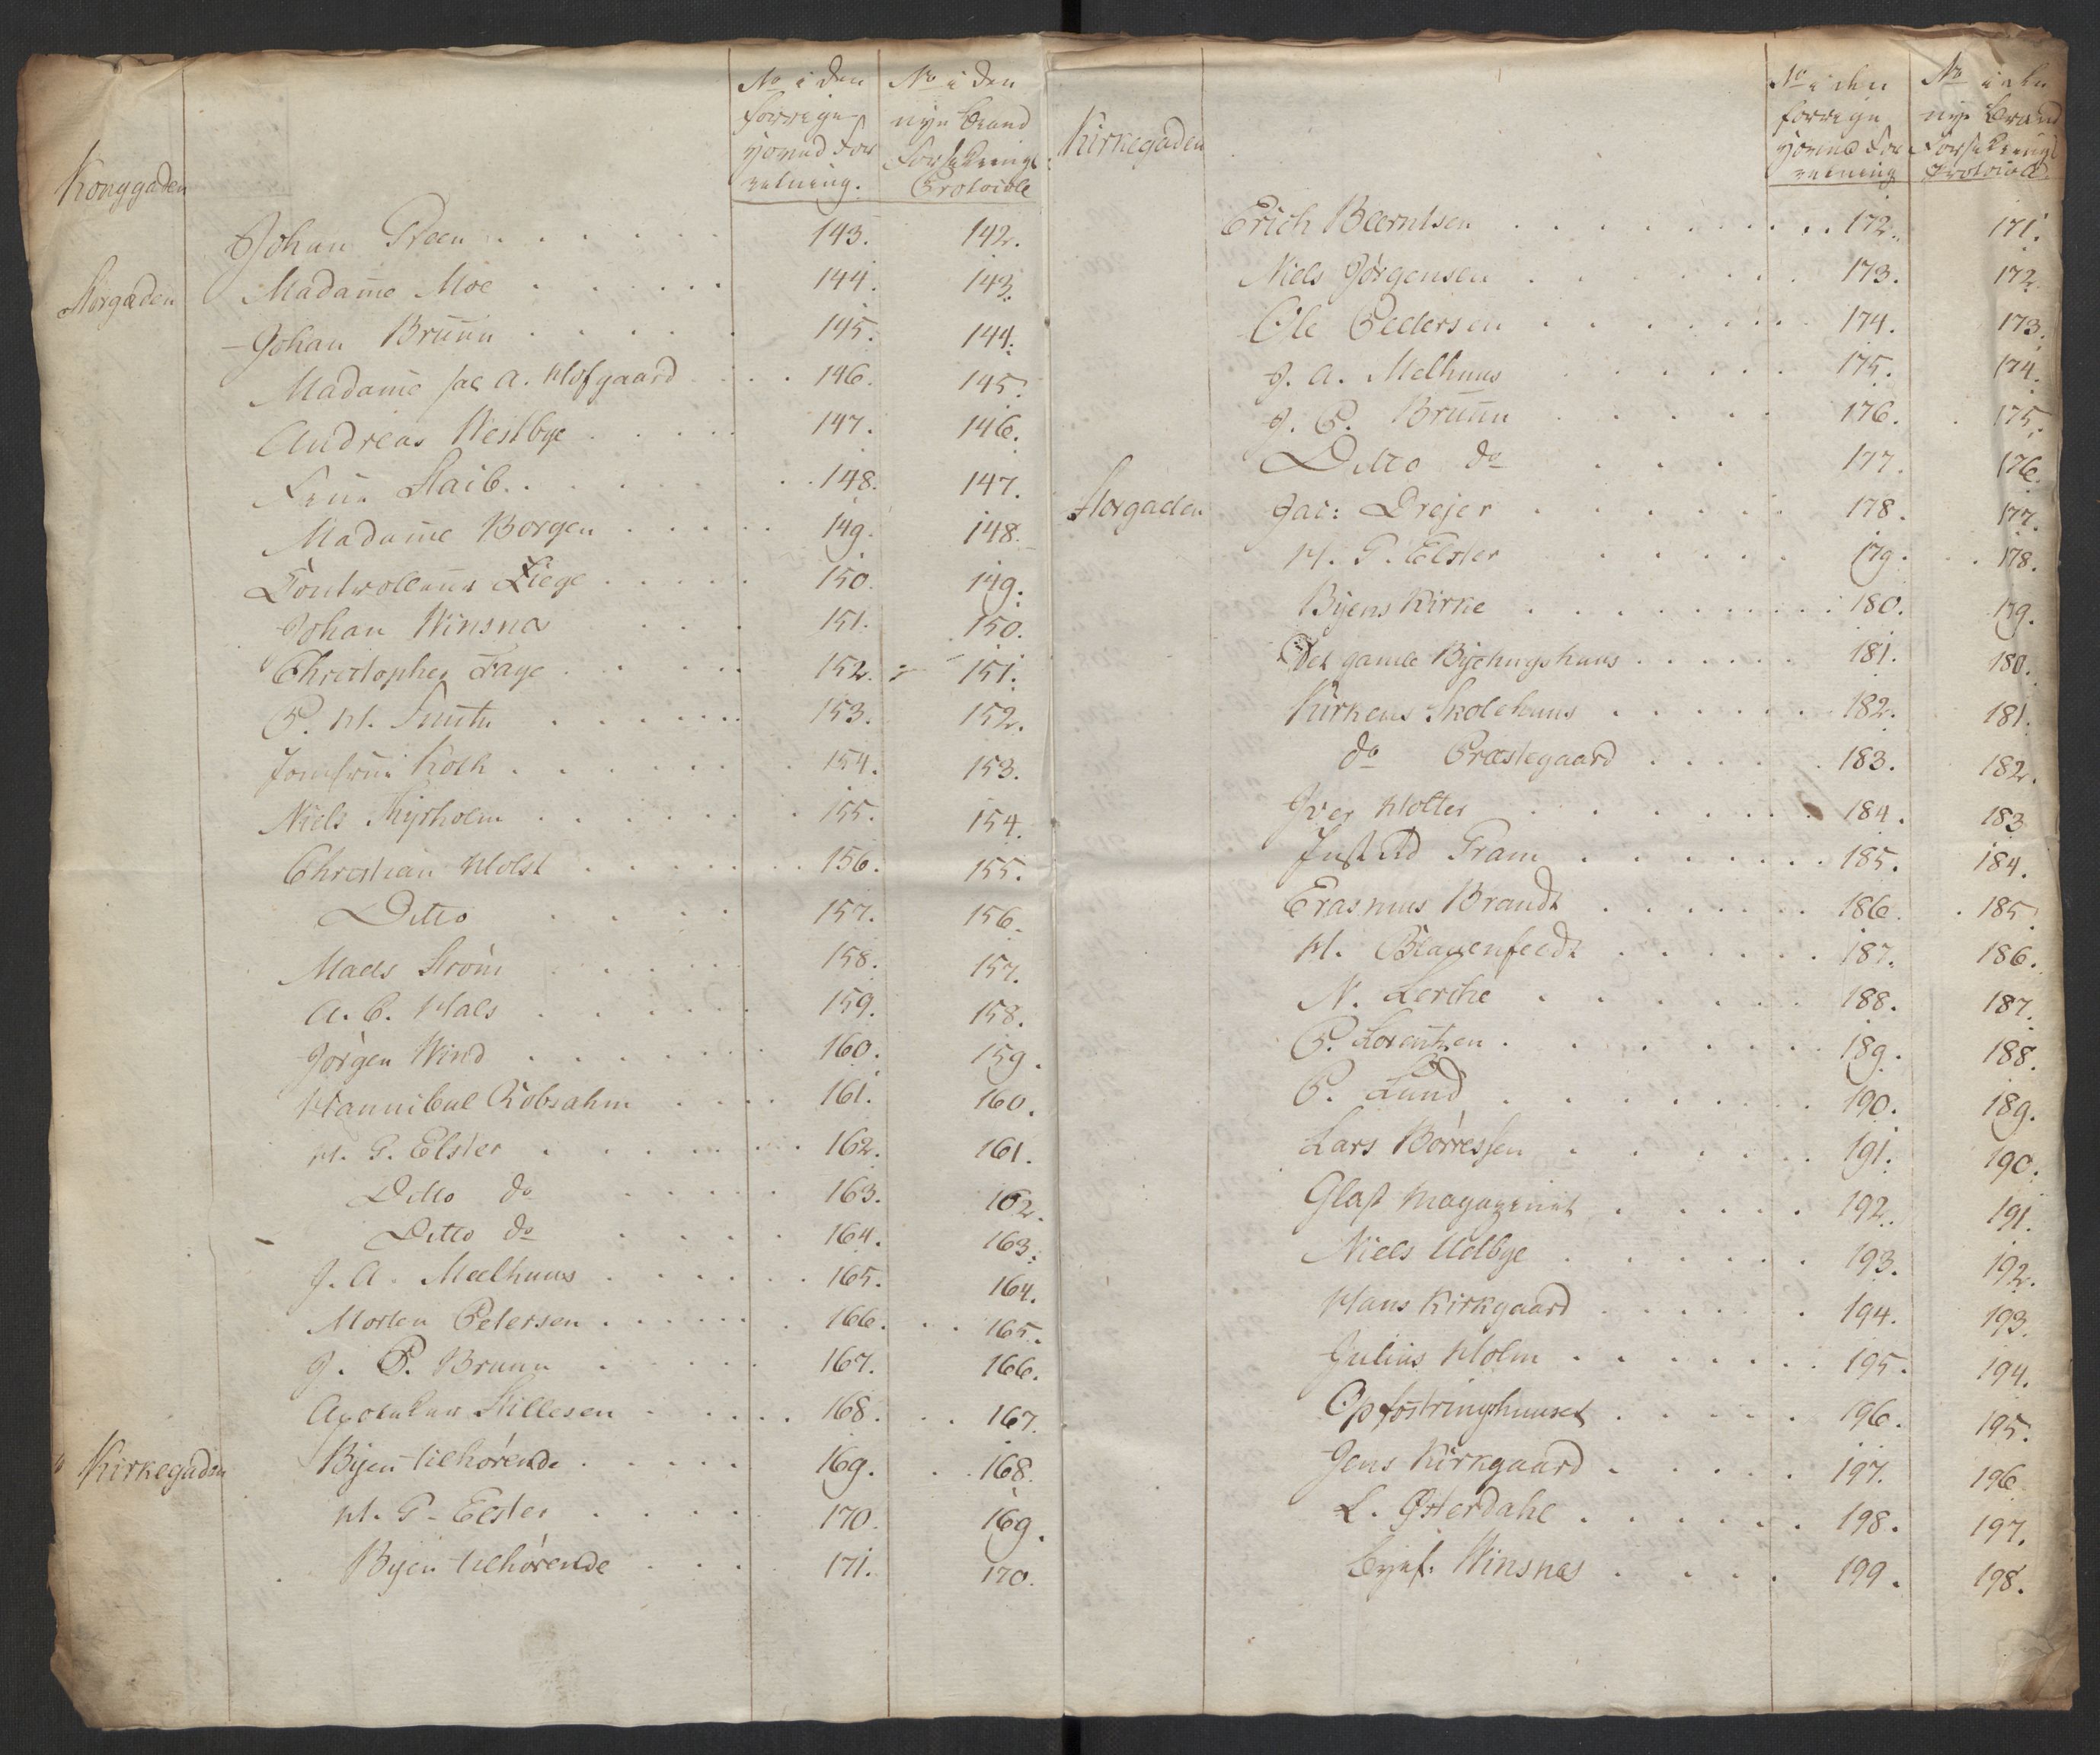 No i den No i den
forrige nye Brand
Grund For Forsikrings
retning. Protocoll
Konggaden
Johan Green 143. 142.
Storgaden Madame Moe 144. 143.
Johan Bruun 145. 144.
Madame sal A. Hofgaard 146. 145.
Andreas Westbye 147. 146.
Staib. 148. 147.
Madame Borgen 149. 148.
Controlleur Liege 150. 149.
Johan Winsnes 151. 150.
Christopher Faye 152. 151.
P. H. 153. 152.
Jomfrue Koch 154. 153.
Niels Thyrholm 155. 154.
Christian Holst 156. 155.
Ditto 157. 156.
Mads Strøm 158. 157.
A. C. Hals 159. 158.
Jørgen Wind 160. 159.
Hannibal Robsahm 161. 160.
H. G. Elster 162. 161.
Ditto do 163. 162.
Ditto do 164. 163.
J. A. Meelhuus 165. 164.
Morten Petersen 166. 165.
J. P. Bruun 167. 166.
Apoteker Stillesen 168. 167.
Kirkegaden Byen tilhørende 169. 168.
H. G. Elster 170. 169.
Byen tilhørende 171. 170.
No i den No i den
forrige nye Brand
Grund For Forsikrings
retning Protocoll
Kirkegaden
Erich Bærntsen 172. 171.
Niels Jørgensen 173. 172.
Ole Pedersen 174. 173.
J. A. Melhuus 175. 174.
J. P. Bruun 176. 175.
Ditto do 177. 176.
Storgaden Jac: Drejer 178. 177.
H. G. Elster 179. 178.
Byens Kirke 180. 179.
Det gamle Bytingshuus 181. 180.
Kirkens Skolehuus 182. 181.
do Præstegaard 183. 182.
Iver Holter 184. 183
Just. Rd Gram 185. 184.
Erasmus Brandt 186. 185.
H. Blauenfeldt 187. 186.
N. Lerche 188. 187.
P. Lorentzen 189. 188.
P. Lund 190. 189.
Lars Børresen 191. 190.
Glass Magazinet 192. 191.
Niels Holbye 193. 192.
Hans Kirkgaard 194. 193.
Julius Holm 195. 194.
Opfostringshuuset 196. 195.
Jens Kirkgaard 197. 196
L. Østerdahl 198. 197.
Byef: Winsnes 199. 198.